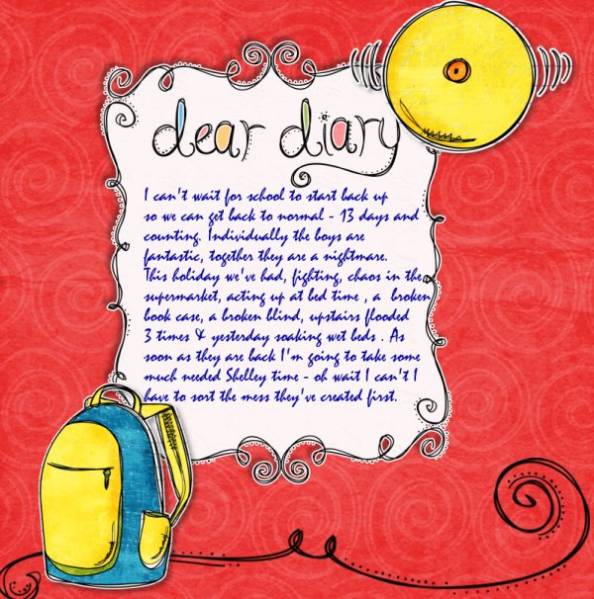 dear diary
I can't wait for school to start back up
so we can get back to normal - 13 days and
counting. Individually the boys are
fantastic, together they are a nightmare.
This holiday we've had, fighting, chaos in the
supermarket, acting up at bed time , a broken
book case, a broken blind, upstairs flooded
3 times & yesterday soaking wet beds . As
soon as they are back I'm going to take some
much needed Shelley time - oh wait I can't I
have to sort the mess they've created first.